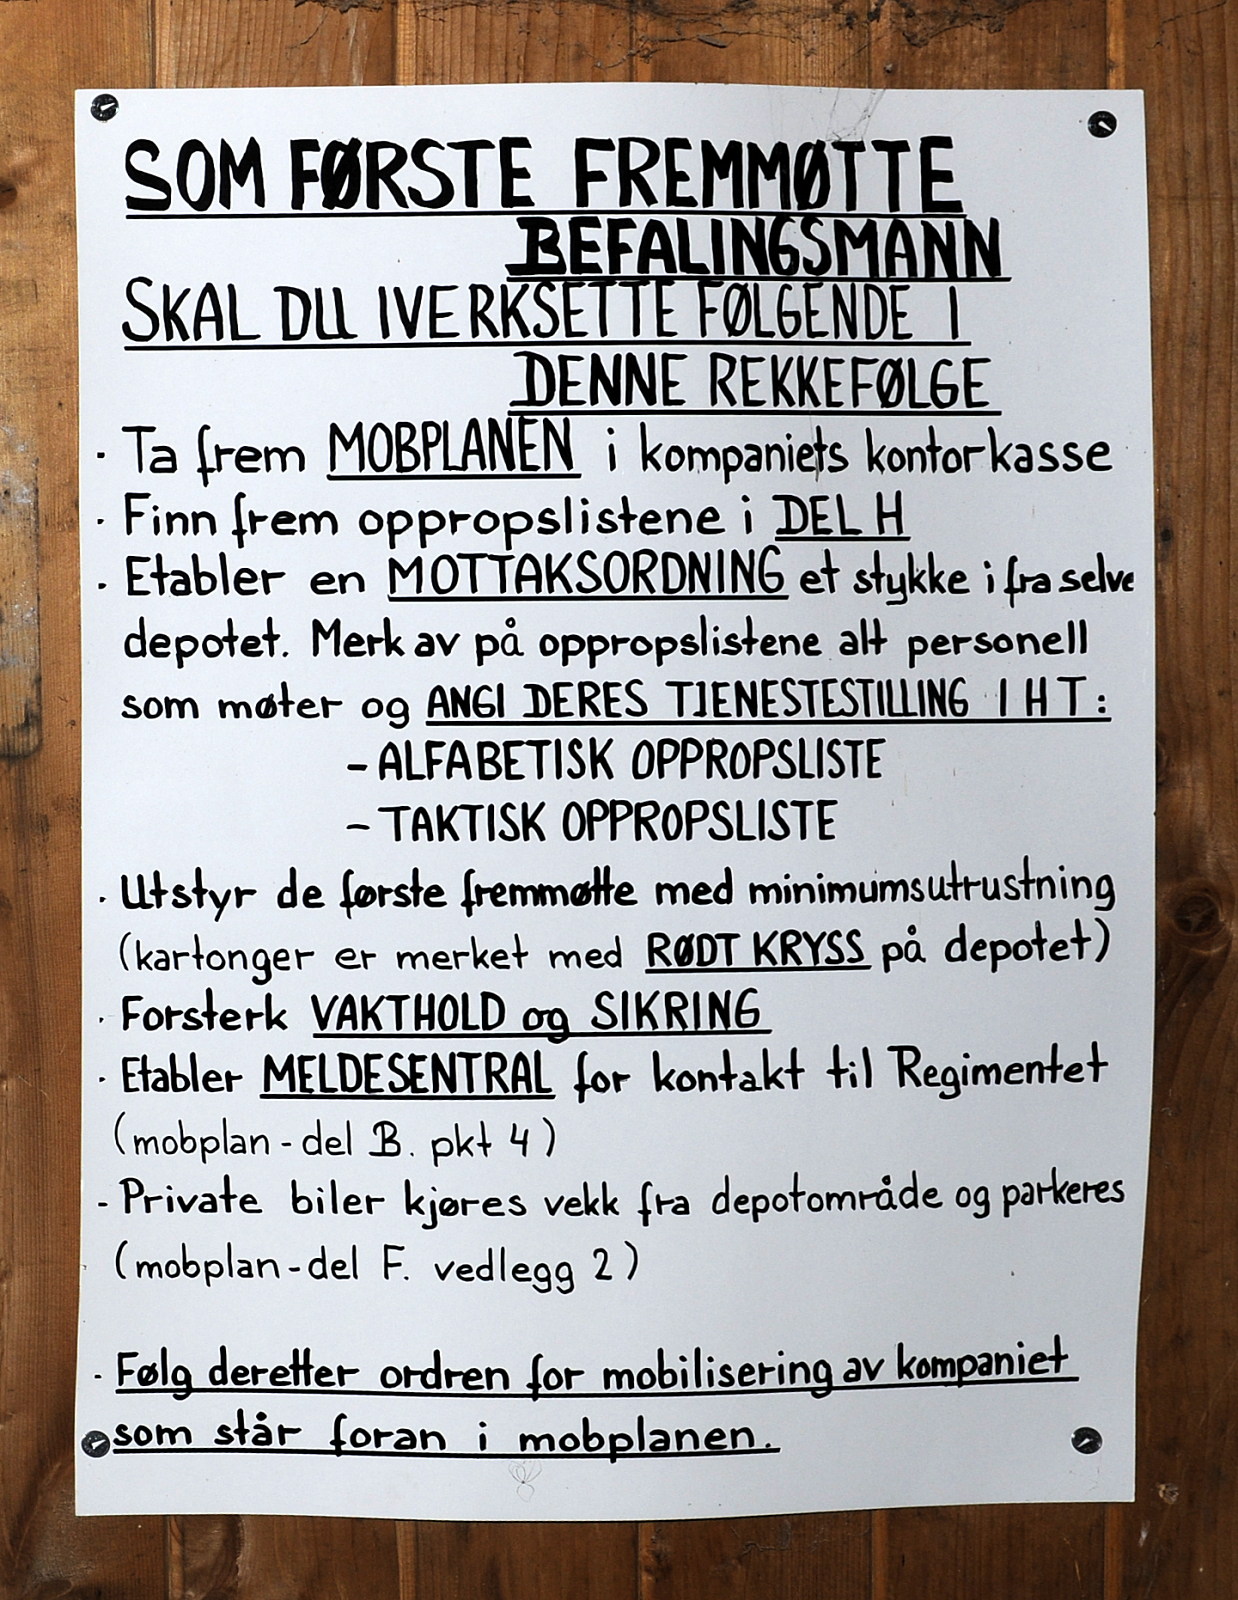 SOM FØRSTE FREMMØTTE
BEFALINGSMANN
SKAL DU IVERKSETTE FØLGENDE I
DENNE REKKEFØLGE
· Ta frem MOBPLANEN i kompaniets kontorkasse
· Finn frem oppropslistene i DEL H
· Etabler en MOTTAKSORDNING et stykke ifra selve
depotet. Merk av på oppropslistene alt personell
som møter og ANGI DERES TJENESTESTILLING I H T:
- ALFABETISK OPPROPSLISTE
- TAKTISK OPPROPSLISTE
· Utstyr de første fremmøtte med minimumsutrustning
(kartonger er merket med RØDT KRYSS på depotet)
· Forsterk VAKTHOLD og SIKRING
· Etabler MELDESENTRAL for kontakt til Regimentet
(mobplan - del B. pkt 4)
- Private biler kjøres vekk fra depotområde og parkeres
(mobplan - del F. vedlegg 2)
- Følg deretter ordren for mobilisering av kompaniet
som står foran i mobplanen.